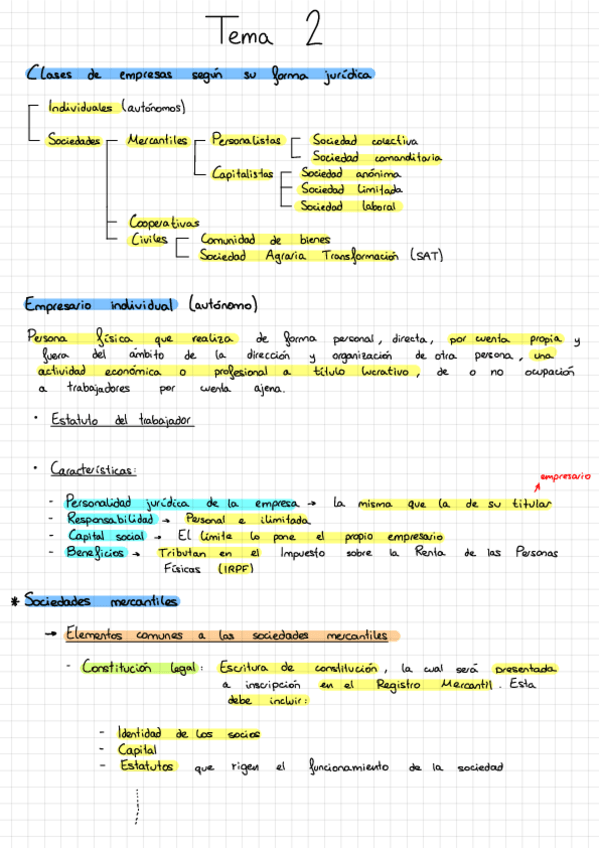 Tema 2
Clases de empresas según su forma jurídica
Individuales (autónomos)
Sociedades Mercantiles Personalistas Sociedad colectiva
Sociedad comanditaria
Capitalistas Sociedad anónima
Sociedad limitada
Sociedad laboral
Cooperativas
Civiles Comunidad de bienes
Sociedad Agraria Transformación (SAT)
Empresario individual (autónomo)
Persona física que realiza de forma personal, directa, por cuenta propia y
fuera del ámbito de la dirección y organización de otra persona, una
actividad económica o profesional a título lucrativo, de o no ocupación
a trabajadores por cuenta ajena.
• Estatuto del trabajador
• Características:
empresario
- Personalidad jurídica de la empresa → La misma que la de su titular
- Responsabilidad → Personal e ilimitada
- Capital social → El límite lo pone el propio empresario
- Beneficios → Tributan en el Impuesto sobre la Renta de las Personas
Físicas (IRPF)
* Sociedades mercantiles
→ Elementos comunes a las sociedades mercantiles
- Constitución legal: Escritura de constitución, la cual será presentada
a inscripción en el Registro Mercantil. Esta
debe incluir:
- Identidad de los socios
- Capital
- Estatutos que rigen el funcionamiento de la sociedad